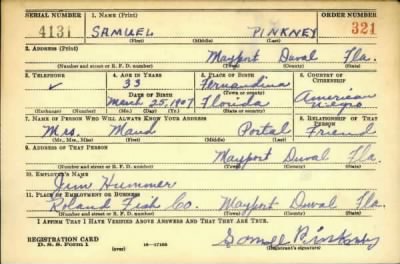 SERIAL NUMBER 1. NAME (Print) ORDER NUMBER
4131 SAMUEL PINKNEY 321
(First) (Middle) (Last)
2. ADDRESS (Print)
Mayport Duval Fla.
(Number and street or R. F. D. number) (Town) (County) (State)
3. TELEPHONE 4. AGE IN YEARS 5. PLACE OF BIRTH 6. COUNTRY OF CITIZENSHIP
✓ 33 Fernandina American
DATE OF BIRTH (Town or county)
March 25, 1907 Florida Negro
(Exchange) (No.) (Mo.) (Day) (Yr.) (State or country)
7. NAME OF PERSON WHO WILL ALWAYS KNOW YOUR ADDRESS 8. RELATIONSHIP OF THAT PERSON
Mrs. Maud Postal Friend
(Mr., Mrs., Miss) (First) (Middle) (Last)
9. ADDRESS OF THAT PERSON
Mayport Duval Fla.
(Number and street or R. F. D. number) (Town) (County) (State)
10. EMPLOYER'S NAME
Jim Hummer
11. PLACE OF EMPLOYMENT OR BUSINESS
Roland Fish Co. Mayport Duval Fla.
(Number and street or R. F. D. number) (Town) (County) (State)
I AFFIRM THAT I HAVE VERIFIED ABOVE ANSWERS AND THAT THEY ARE TRUE.
REGISTRATION CARD
D. S. S. Form 1 (over) 16-17105 (Registrant's signature)